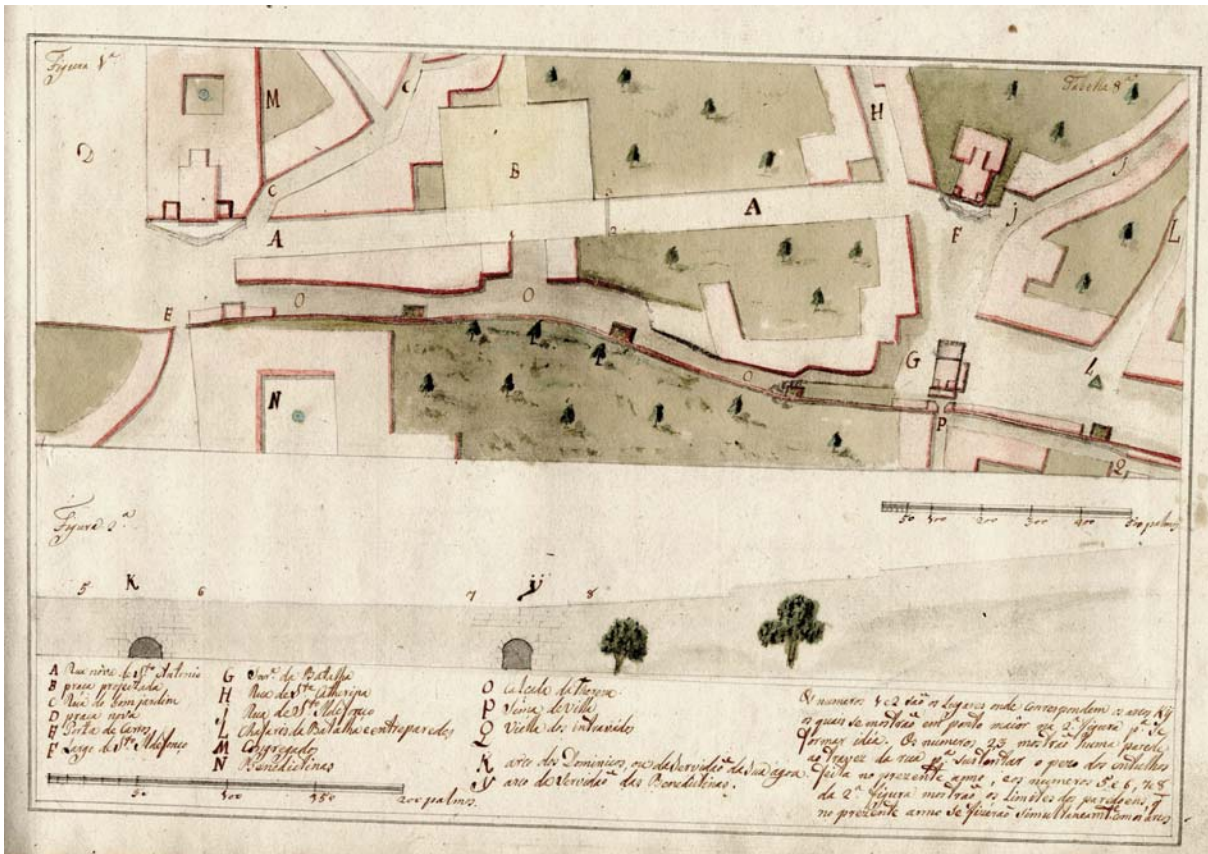 Figura 1ª
Tabella 8ª
D
M
C
C
B
H
A
A
F
j
j
L
E
O
O
O
N
G
P
L
Q
50 100 200 300 400 500 palmos
Figura 2ª
5 K 6 7 ÿ 8
A Rua nova de Sto Antonio
B praça projectada
C Rua do bomjardim
D praça nova
E Porta de Carros
F Largo de Sto Ildefonço
G da Batalha
H Rua de Sta Catherina
J Rua de Sto Ildefonço
L Chafares da Batalha e entreparedes
M Congregados
N Benedictinas
O Calçada da Thereza
P Sima de Villa
Q Viella dos intravados
K arco dos Dominicos, ou da Servidaõ da Sua agoa.
ÿ arco de Servidaõ das Benedictinas.
50 100 150 200 palmos.
Os numeros 1 e 2 saõ os lugares onde Correspondem os arcos K ÿ
os quais se mostraõ em ponto maior na 2ª figura pª Se
formar idia. Os numeros 2 3 mostraõ huma parede
ao travez da rua pª Sustentar o pezo dos entulhos
feita no prezente anno, e os numeros 5 e 6, 7 e 8
da 2ª figura mostraõ os Limites dos paredoens, q
no prezente anno Se fizeraõ Simultaneamte com os arcos